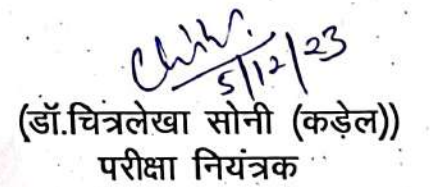 5/12/23
(डॉ.चित्रलेखा सोनी (कड़ेल))
परीक्षा नियंत्रक